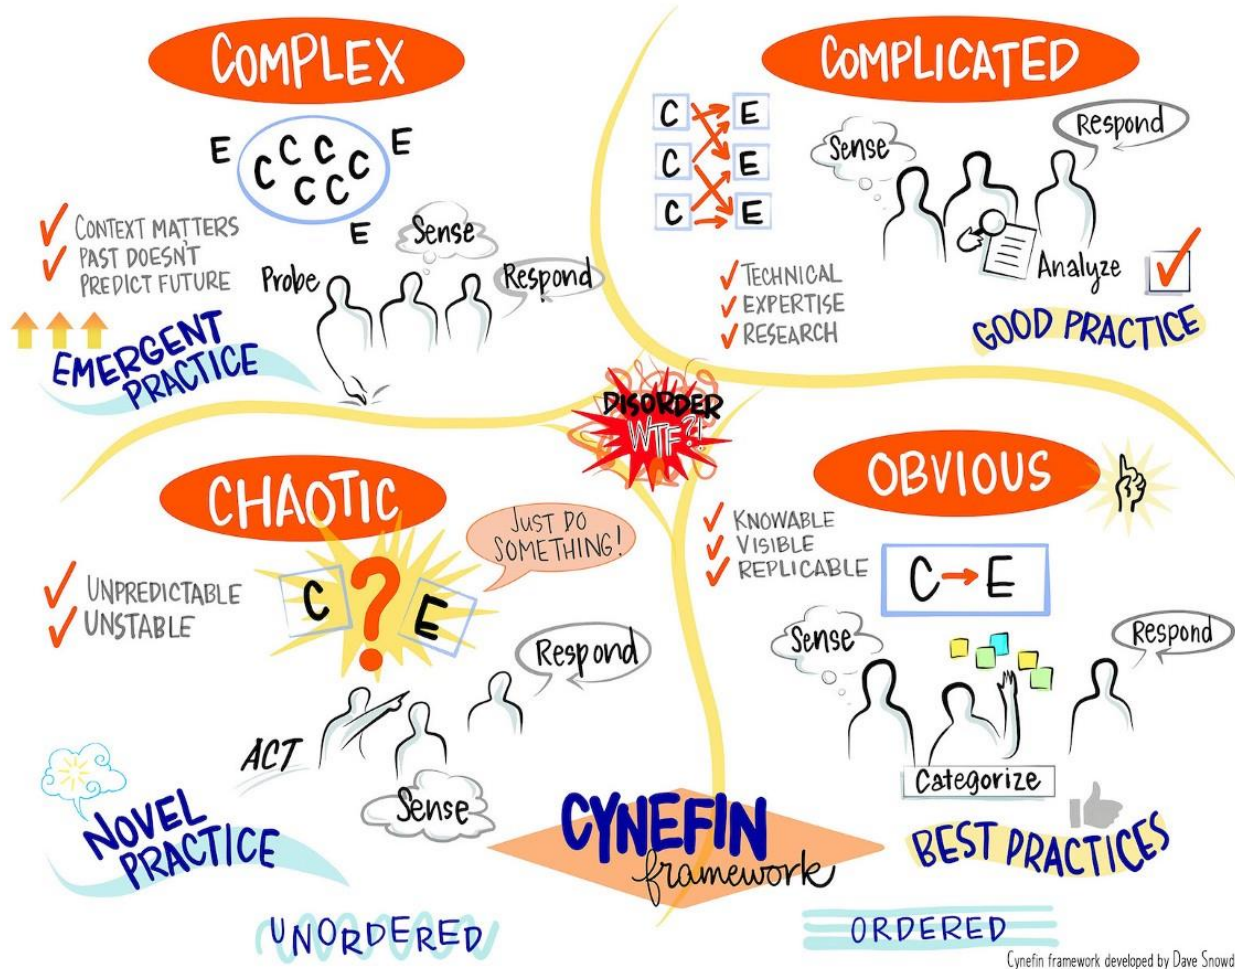 COMPLEX
E
C C C C C C C
E
E
CONTEXT MATTERS
PAST DOESN'T
PREDICT FUTURE
Probe
Sense
Respond
EMERGENT
PRACTICE
COMPLICATED
C E
C E
C E
Sense
Respond
Analyze
TECHNICAL
EXPERTISE
RESEARCH
GOOD PRACTICE
DISORDER
WTF?!
CHAOTIC
JUST DO
SOMETHING!
C ? E
UNPREDICTABLE
UNSTABLE
Respond
ACT
Sense
NOVEL
PRACTICE
OBVIOUS
KNOWABLE
VISIBLE
REPLICABLE
C → E
Sense
Respond
Categorize
BEST PRACTICES
CYNEFIN
framework
UNORDERED
ORDERED
Cynefin framework developed by Dave Snowd